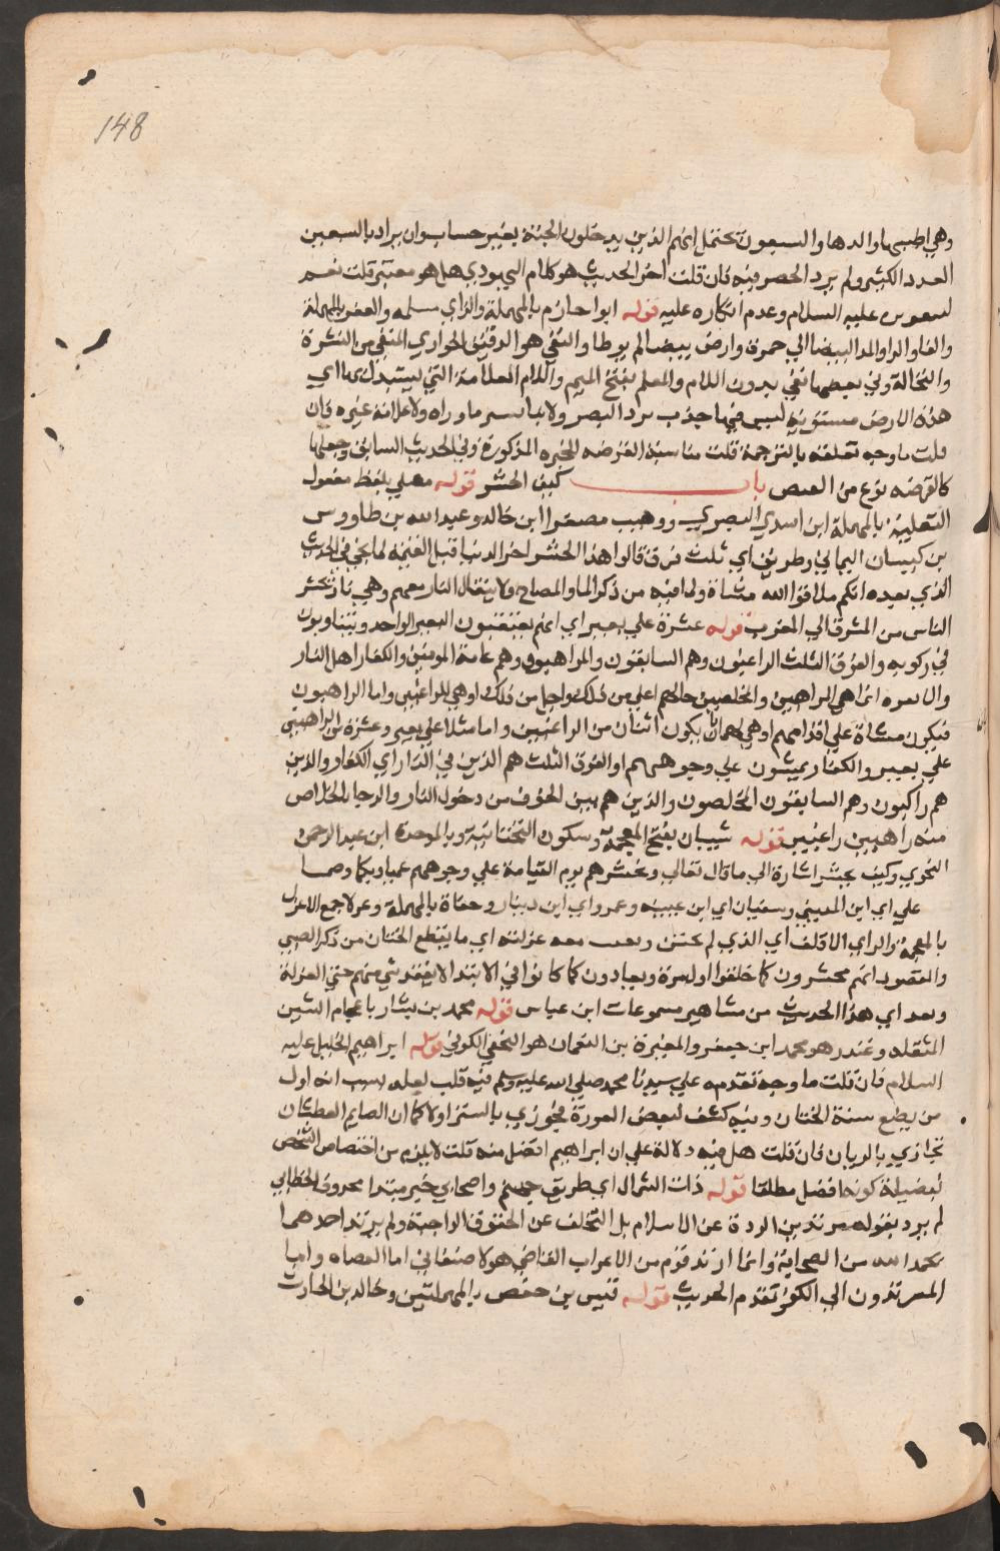 148
وهي اطيبها والدها والسبعون تحتمل انهم الذين يدخلون الجنة بغير حساب وان يراد بالسبعين
العدد الكثير ولم يرد الحصر فيه فان قلت اخر الحديث هو كلام اليهودي هل هو معتبر قلت نعم
عليه السلام وعدم انكاره عليه قوله ابو حازم بالمهملة والزاي سلمه والعفر بالمهملة
والفا والرا والمد البيضا الي حمرة وارض بيضا لم يوطا والنقي هو الدقيق الحواري المنقي من القشرة
والنخالة وفي بعضها نقي بدون اللام والمعلم بفتح الميم واللام العلامة التي يستدل بها اي
هذه الارض مستوية ليس فيها حدب يرد البصر ولا بنا يستر ما وراه ولا علامة غيره فان
قلت ما وجه تعلقه بالترجمة قلت مناسبة القرصة للخبزه المذكورة في الحديث السابق وجعلها
كالقرصه نوع من القبض باب كيف الحشر قوله معلي بلفظ مفعول
التعلية بالمهملة ابن اسد البصري ووهيب مصغرا ابن خالد وعبد الله بن طاووس
بن كيسان اليماني وطريق اي ثلث فرق قالوا هذا الحشر اخر الدنيا قبل القيمة لما يجي في الحديث
الذي بعده انكم ملاقوا الله مشاة ولما فيه من ذكر المسا والصباح ولانتقال النار معهم وهي نار تحشر
الناس من المشرق الي المغرب قوله عشرة علي بعير اي انهم يعتقبون البعير الواحد ويتناوبون
في ركوبه والفرق الثلث الراغبون وهم السابقون والراهبون وهم عامة المومنين والكفار اهل النار
والابعره انما هي للراهبين والمخلصين حالهم اعلي من ذلك واجل من ذلك او هي للراغبين واما الراهبون
فيكون مشاة علي اقدامهم او هي لهما بان يكون اثنان من الراغبين واما مثلا علي بعير وعشرة من الراهبين
علي بعير والكفار يمشون علي وجوههم او الفرق الثلث هم الذين في النار اي الكفار والذين
هم راكبون وهم السابقون المخلصون والذين هم بين الخوف من دخول النار والرجا بالخلاص
منه راهبين راغبين قوله شيبان بفتح المعجمة وسكون التحتانية وبالموحدة ابن عبد الرحمن
النحوي وكيف يحشر اشارة الي ما قال تعالي ونحشرهم يوم القيامة علي وجوههم عميا وبكما وصما
علي اي ابن المديني وسفيان اي ابن عيينه وعمرو اي ابن دينار وحفاة بالمهملة وغرلا جمع الاغرل
بالمعجمة والراي الاقلف اي الذي لم يختتن وبقيت معه غرلته اي ما يقطع الختان من ذكر الصبي
والمقصود انهم يحشرون كما خلقوا اول مرة ويعادون كما كانوا في الابتدا لا يفقد شي منهم حتي الغرلة
وبعد اي هذا الحديث من مشاهير مسموعات ابن عباس قوله محمد بن بشار باعجام الشين
المثقله وغندر هو محمد ابن جعفر والمغيرة بن النعمان هو النخعي الكوفي قوله ابراهيم الخليل عليه
السلام فان قلت ما وجه تقدمه علي سيدنا محمد صلي الله عليه وسلم فيه قلت لعله بسبب انه اول
من يضع سنة الختان وفيه كشف لبعض العورة فجوزي بالستر اولا كما ان الصايم العطشان
يجازي بالريان فان قلت هل فيه دلالة علي ان ابراهيم افضل منه قلت لا يلزم من اختصاص الشخص
بفضيلة كونه افضل مطلقا قوله ذات الشمال اي طريق جهنم واصحابي خبر مبتدا محذوف الخطابي
لم يرد بقوله مرتدين الردة عن الاسلام بل التخلف عن الحقوق الواجبة ولم يرتد احد هما
بحمد الله من الصحابة وانما ارتد قوم من الاعراب القاضي هولا صنفان اما العصاه واما
المرتدون الي الكفر تقدم الحديث قوله قيس بن حفص بالمهملتين وخالد بن الحارث